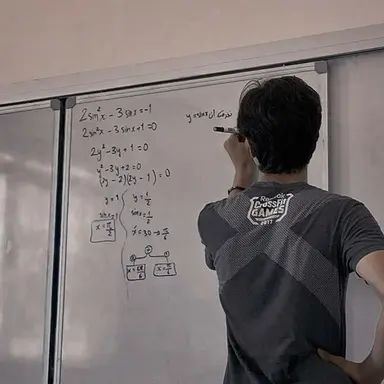 2sin²x - 3sinx = -1
2sin²x - 3sinx + 1 = 0
2y² - 3y + 1 = 0
y² - 3y + 2 = 0
(y - 2)(2y - 1) = 0
y = 1 y = 1/2
sinx = 1 sinx = 1/2
x = π/2 x = 30 → π/6
x = 5π/6 x = π/6
y = sinx
Reebok
CROSSFIT
GAMES
2017